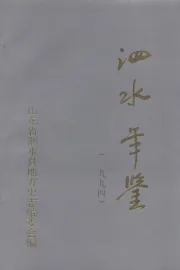 泗水年鉴
(一九九四)
山东省泗水县地方史志编委会编